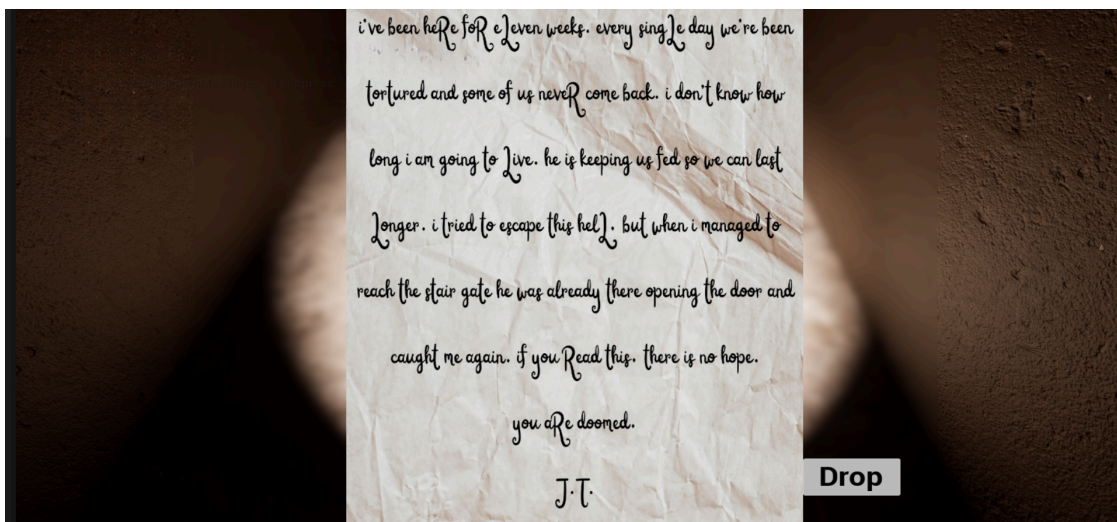 i've been heRe foR eLeven weeks. every singLe day we're been
tortured and some of us neveR come back. i don't know how
long i am going to Live. he is keeping us fed so we can last
Longer. i tried to escape this helL. but when i managed to
reach the stair gate he was already there opening the door and
caught me again. if you Read this. there is no hope.
you aRe doomed.
J.T.
Drop